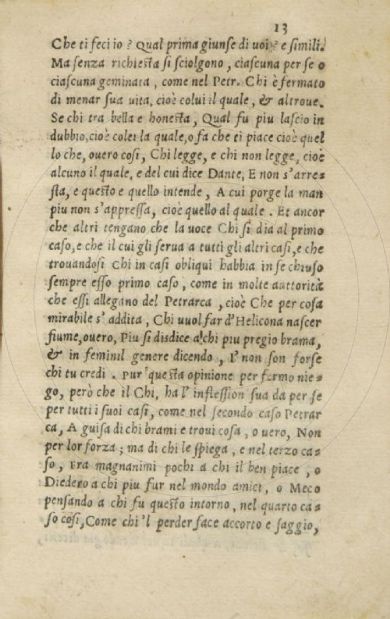 13
Che ti feci io ? Qual prima giunse di uoi ? e simili.
Ma senza richiesta si sciolgono , ciascuna per se o
ciascuna geminata , come nel Petr. Chi è fermato
di menar sua uita, cioè colui il quale , & altroue.
Se chi tra bella e honesta , Qual fu piu lascio in
dubbio, cioè colei la quale, o fa che ti piace cioè quel
lo che, ouero cosi, Chi legge, e chi non legge, cioè
alcuno il quale, e del cui dice Dante, E non s'arre-
sta, e questo e quello intende , A cui porge la man
piu non s'appressa, cioè quello al quale . Et ancor
che altri tengano che la uoce Chi si dia al primo
caso, e che il cui gli serua a tutti gli altri casi, e che
trouandosi Chi in casi obliqui habbia in se chiuso
sempre esso primo caso , come in molte auttorità
che essi allegano del Petrarca , cioè Che per cosa
mirabile s'addita , Chi uuol far d'Helicona nascer
fiume, ouero, Piu si disdice a chi piu pregio brama,
& in feminil genere dicendo , I' non son forse
chi tu credi . Pur questa opinione per fermo nie-
go, però che il Chi, ha l' inflession sua da per se
per tutti i suoi casi, come nel secondo caso Petrar
ca, A guisa di chi brami e troui cosa , o uero, Non
per lor forza ; ma di chi le spiega , e nel terzo ca-
so , Fra magnanimi pochi a chi il ben piace , o
Diedero a chi piu fur nel mondo amici , o Meco
pensando a chi fu questo intorno , nel quarto ca-
so cosi, Come chi 'l perder face accorto e saggio,